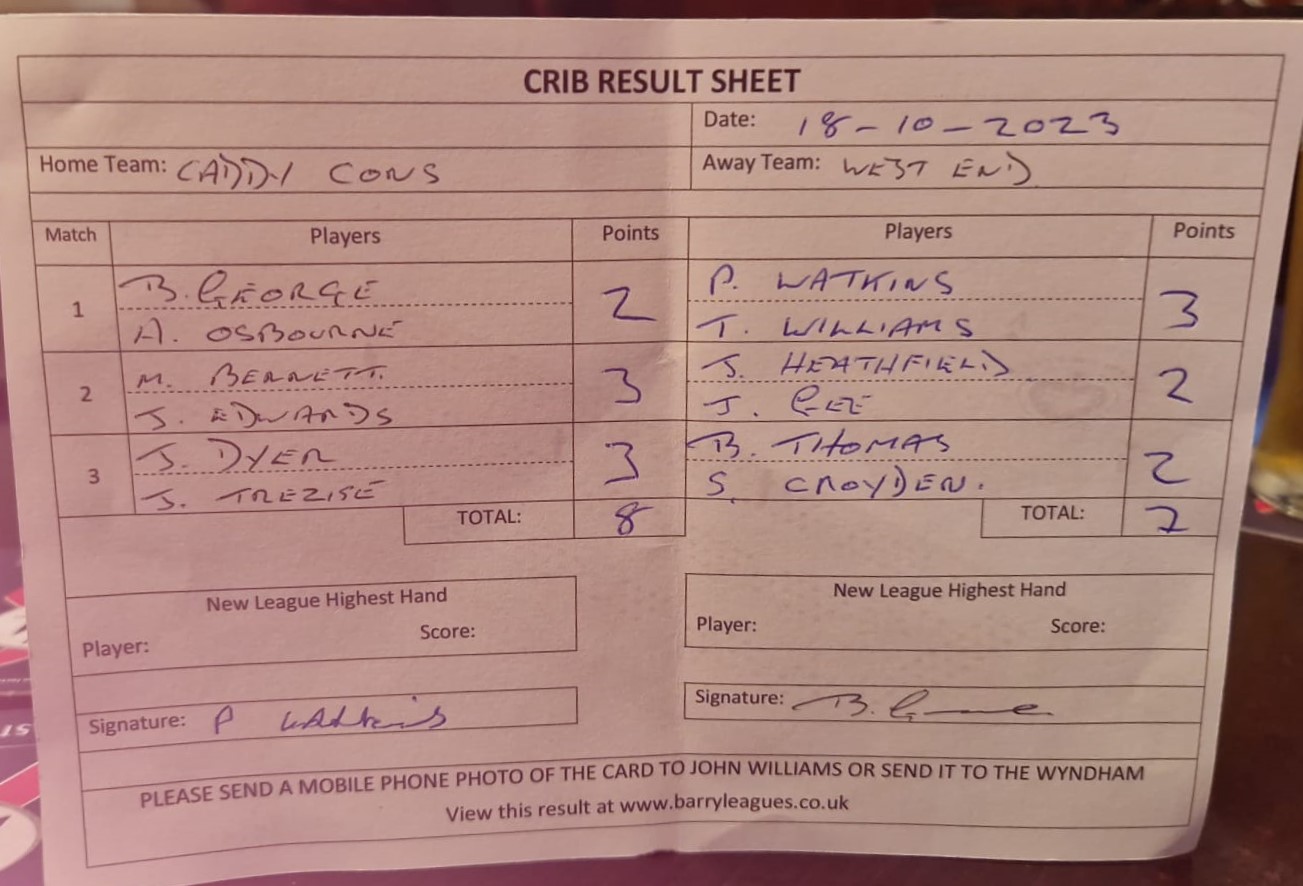 CRIB RESULT SHEET
Date: 18-10-2023
Home Team: CADDY CONS Away Team: WEST END
Match Players Points Players Points
1 B. GEORGE 2 P. WATKINS 3
A. OSBOURNE T. WILLIAMS
2 M. BENNETT. 3 J. HEATHFIELD 2
J. EDWARDS J. GEE
3 J. DYER 3 B. THOMAS 2
J. TREZISE S. CROYDEN.
TOTAL: 8 TOTAL: 7
New League Highest Hand New League Highest Hand
Player: Score: Player: Score:
Signature: P Watkins Signature: B. George
PLEASE SEND A MOBILE PHONE PHOTO OF THE CARD TO JOHN WILLIAMS OR SEND IT TO THE WYNDHAM
View this result at www.barryleagues.co.uk